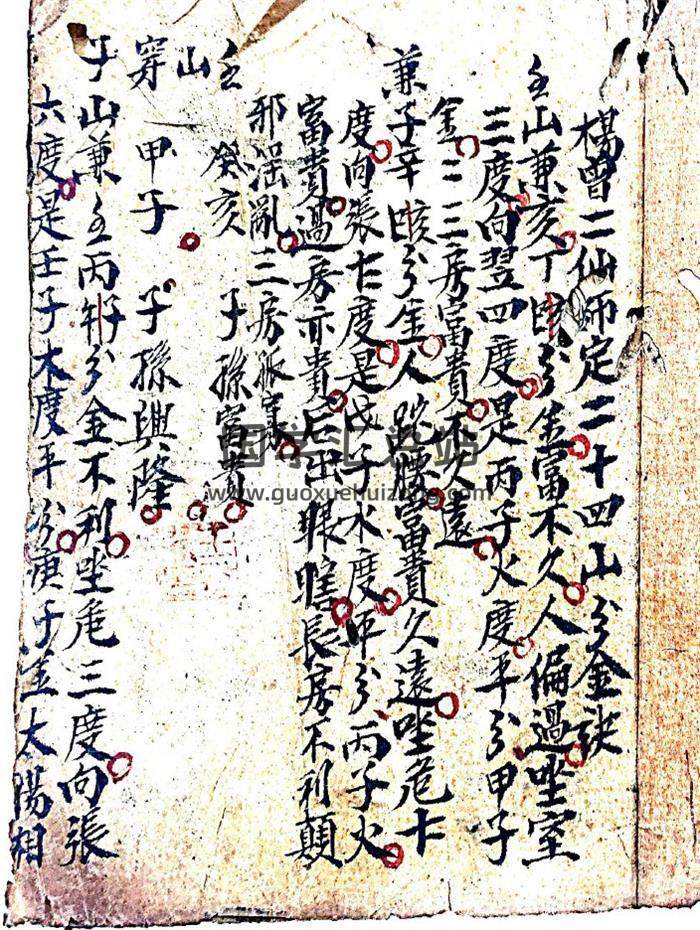 楊曾二仙師定二十四山分金訣
壬山兼亥丁 分金富不久人偏過坐室
三度向翌四度是丙子火度平分甲子
金二三房富貴不久遠
兼子辛 分金人跎腰富貴久遠坐危十
度向張七度是戊子水度平分丙子火
富貴過房亦貴后出眼瞎長房不利顛
邪淫亂三房孤寡
壬山穿
癸亥 子孫富貴
甲子 子孫興隆
子山兼壬丙 分金不利坐危三度向張
六度是壬子木度平分庚子 太陽相
国学汇总站
www.guoxuehuizong.com